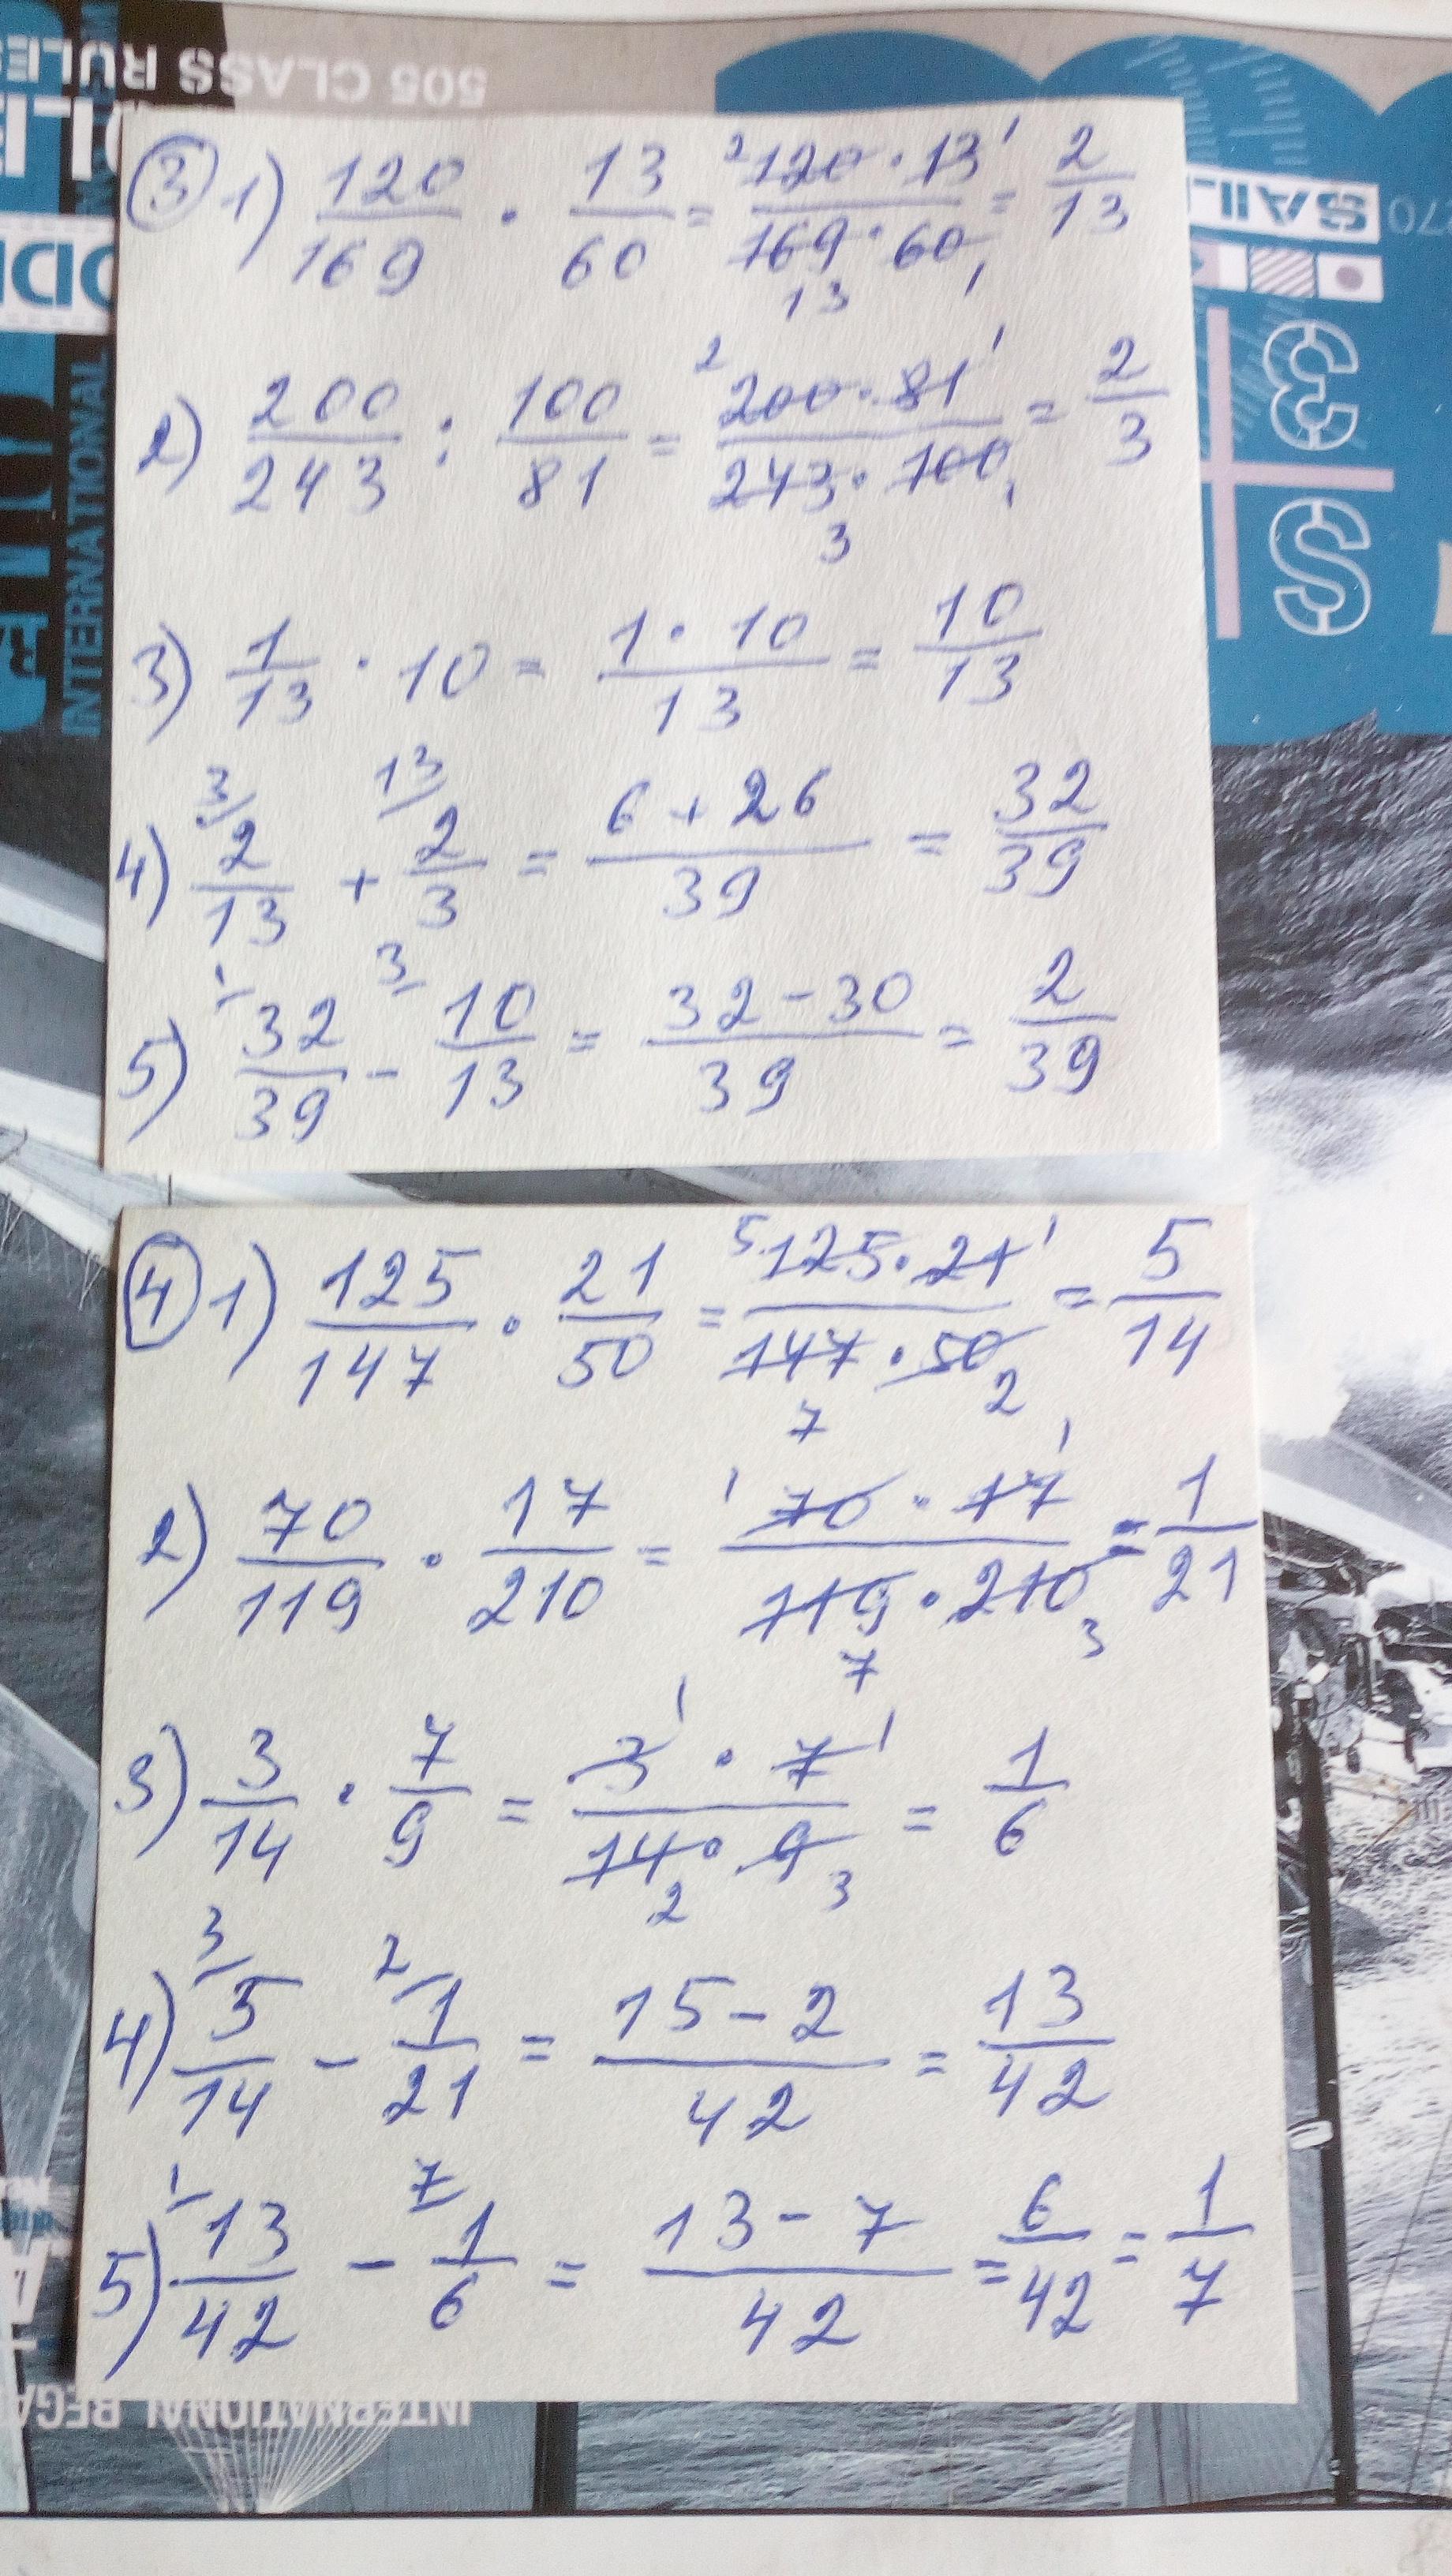 505 CLASS RULES
SAIL
INTERNATIONAL
3
S
③ 1) 120/169 · 13/60 = ²120 · 13¹ / 169 · 60 = 2/13
13 1
2) 200/243 : 100/81 = ²200 · 81¹ / 243 · 100 = 2/3
3 1
3) 1/13 · 10 = 1 · 10 / 13 = 10/13
4) ³⁄2/13 + ¹³⁄2/3 = 6 + 26 / 39 = 32/39
5) ¹⁄32/39 - ³⁄10/13 = 32 - 30 / 39 = 2/39
④ 1) 125/147 · 21/50 = ⁵125 · 21¹ / 147 · 50 = 5/14
7 2
2) 70/119 · 17/210 = ¹70 · 17¹ / 119 · 210 = 1/21
7 3
3) 3/14 · 7/9 = 3¹ · 7¹ / 14 · 9 = 1/6
2 3
4) ³⁄5/14 - ²⁄1/21 = 15 - 2 / 42 = 13/42
5) ¹⁄13/42 - ⁷⁄1/6 = 13 - 7 / 42 = 6/42 = 1/7
INTERNATIONAL